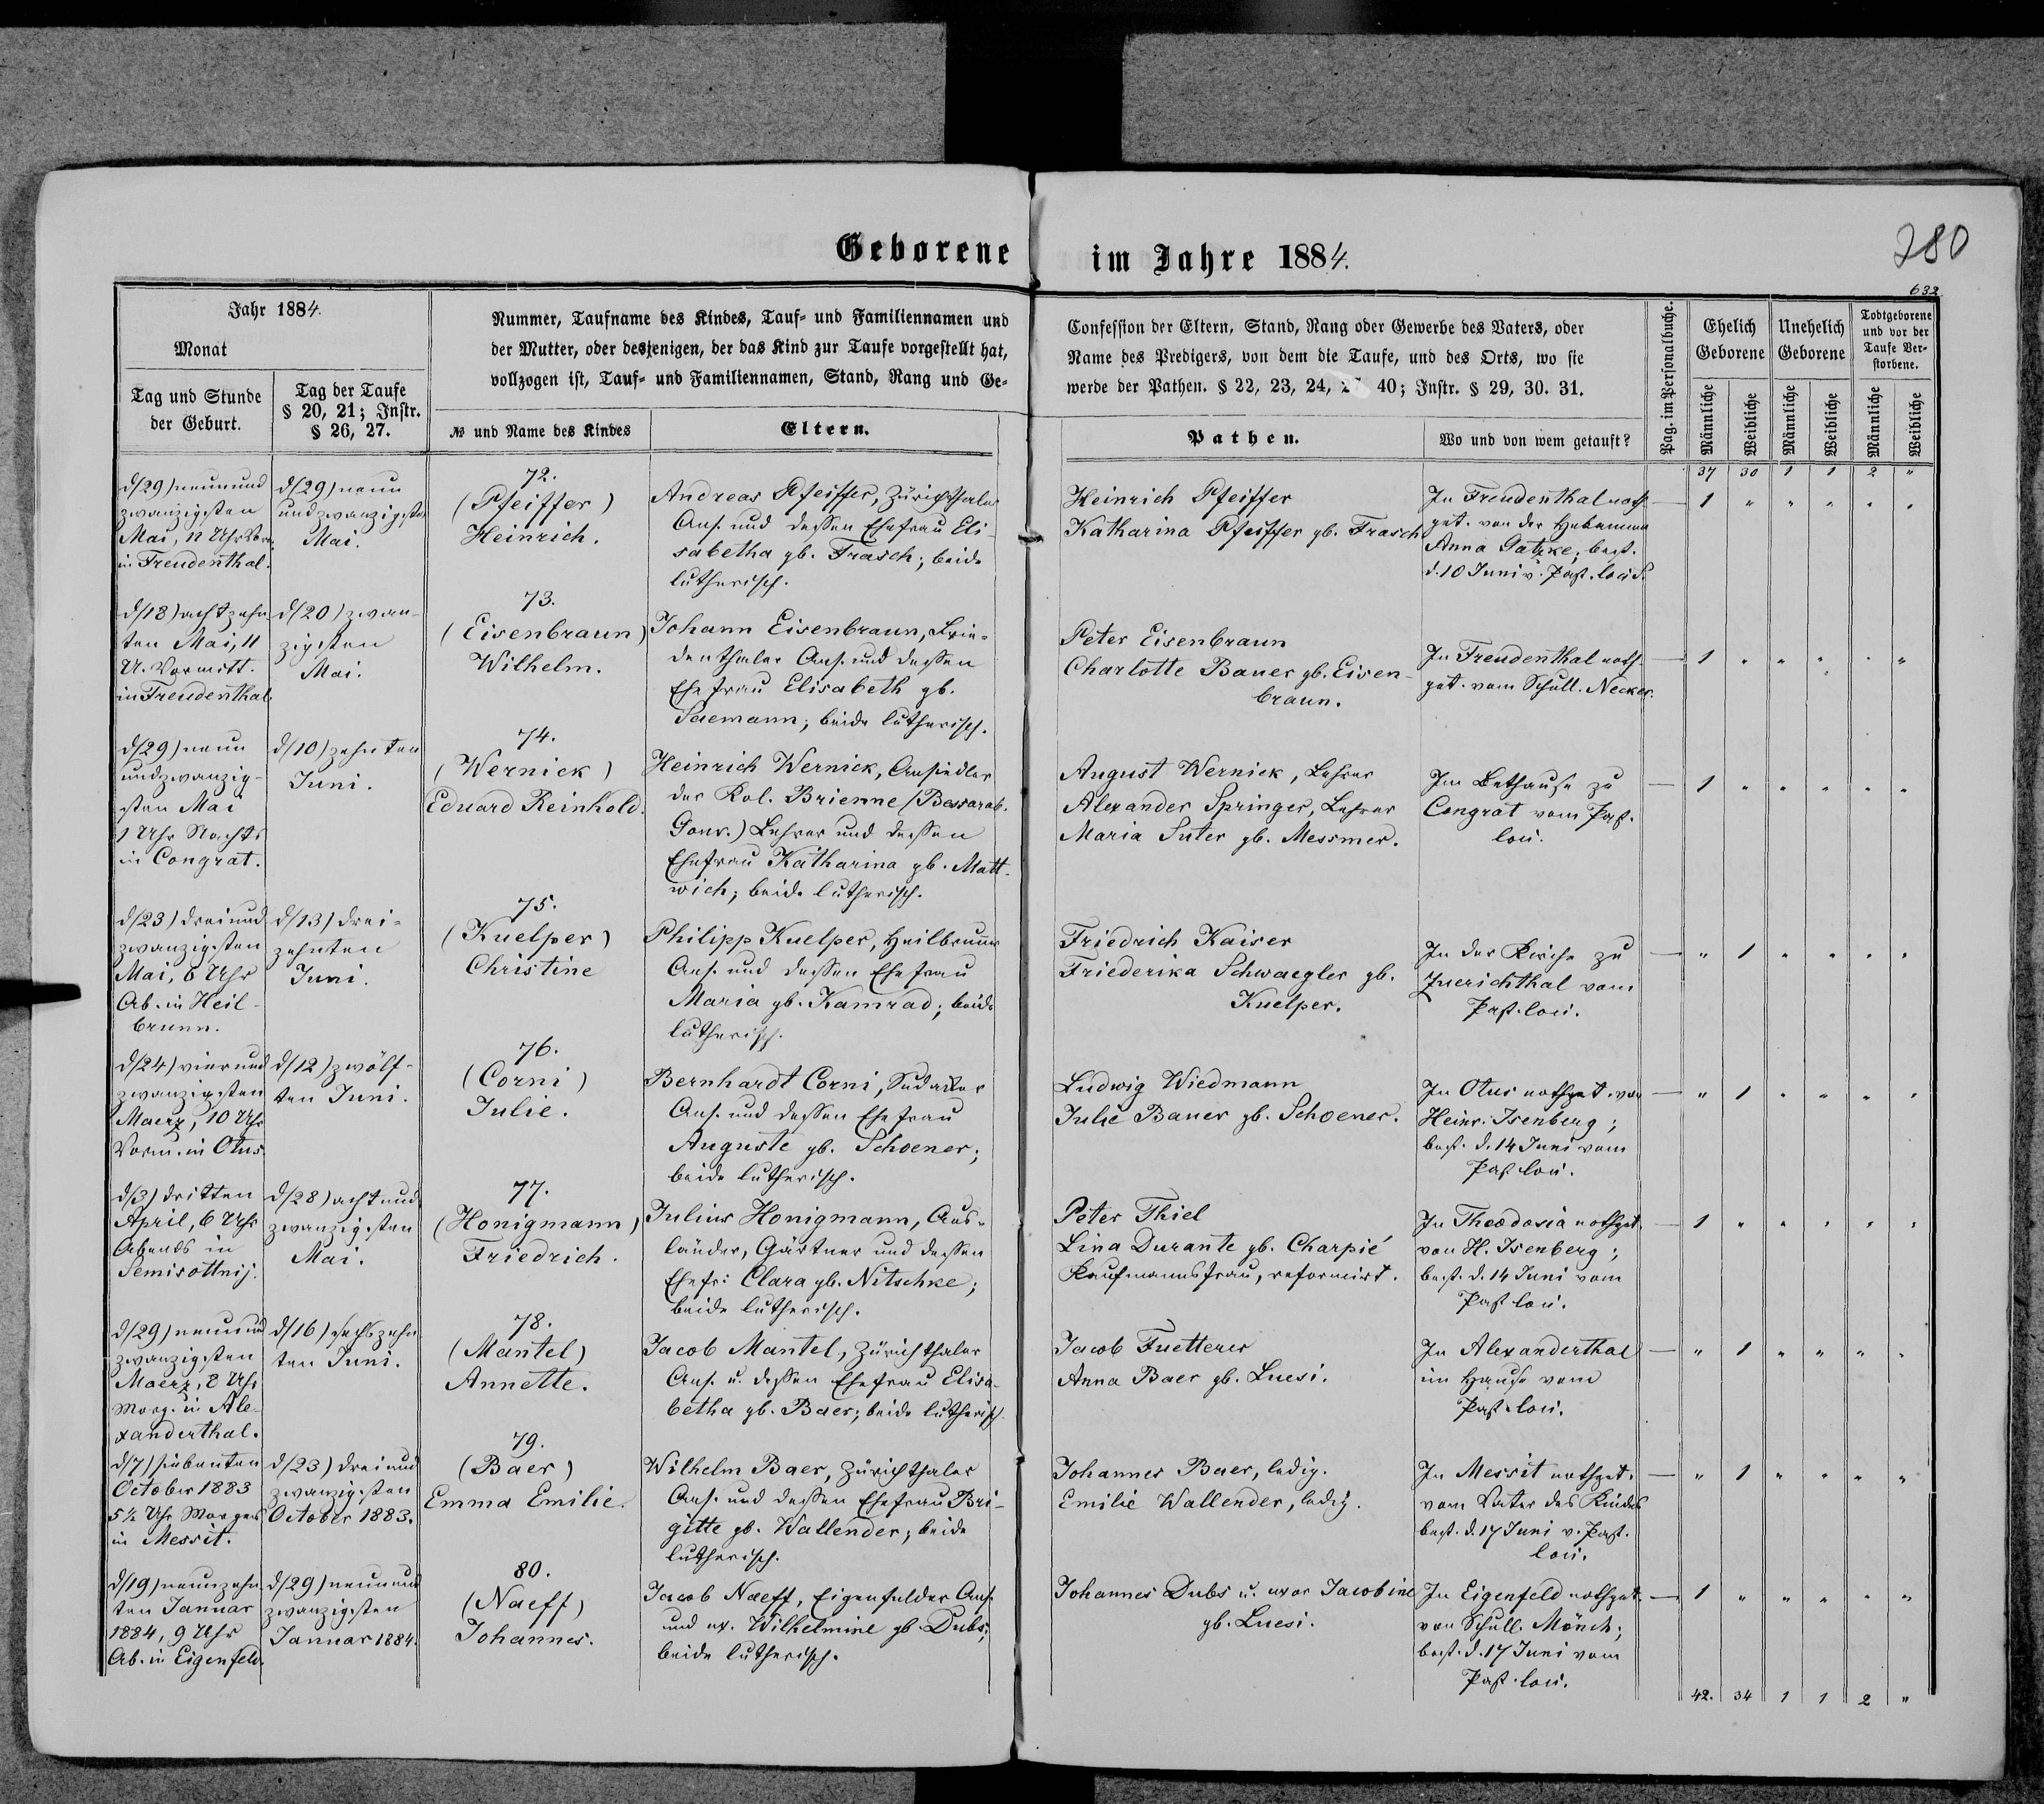 Geborene im Jahre 1884.
280
632
Jahr 1884.
Monat
Tag und Stunde
der Geburt.
Tag der Taufe
§ 20, 21; Instr.
§ 26, 27.
Nummer, Taufname des Kindes, Tauf- und Familiennamen und
der Mutter, oder desjenigen, der das Kind zur Taufe vorgestellt hat,
vollzogen ist, Tauf- und Familiennamen, Stand, Rang und Ge-
№ und Name des Kindes
Eltern.
Confession der Eltern, Stand, Rang oder Gewerbe des Vaters, oder
Name des Predigers, von dem die Taufe, und des Orts, wo sie
werde der Pathen. § 22, 23, 24, 40; Instr. § 29, 30. 31.
Pathen.
Wo und von wem getauft?
Pag. im Personalbuche.
Ehelich
Geborene
Unehelich
Geborene
Todtgeborene
und vor der
Taufe Ver-
storbene.
Männliche
Weibliche
Männliche
Weibliche
Männliche
Weibliche
37 30 1 1 2 "
d/29) neunund
zwanzigsten
Mai, 11 Uhr Vorm.
in Freudenthal.
d/29) neun
undzwanzigsten
Mai.
72.
(Pfeiffer)
Heinrich.
Andreas Pfeiffer, Zürichthaler
Ans. und dessen Ehefrau Eli-
sabetha gb. Frasch; beide
lutherisch.
Heinrich Pfeiffer
Katharina Pfeiffer gb. Frasch
In Freudenthal noth-
get. von der Hebamme
Anna Gatzke; best.
d. 10 Juni v. Past. loci.
1 " " " " "
d/18) achtzehn
ten Mai, 11
U. Vormitt.
in Freudenthal
d/20) zwan-
zigsten
Mai.
73.
(Eisenbraun)
Wilhelm.
Johann Eisenbraun, Frie-
denthaler Ans. und dessen
Ehefrau Elisabeth gb.
Saemann; beide lutherisch.
Peter Eisenbraun
Charlotte Bauer gb. Eisen-
braun.
In Freudenthal noth-
get. vom Schull. Necker.
1 " " " " "
d/29) neun
undzwanzig-
sten Mai
1 Uhr Nachts
in Congrat.
d/10) zehnten
Juni.
74.
(Wernick)
Eduard Reinhold.
Heinrich Wernick, Ansiedler
der Kol. Brienne (Bessarab.
Gouv.) Lehrer und dessen
Ehefrau Katharina gb. Matt-
wich; beide lutherisch.
August Wernick, Lehrer
Alexander Springer, Lehrer
Maria Suter gb. Messmer.
Im Bethause zu
Congrat vom Past.
loci.
1 " " " " "
d/23) dreiund
zwanzigsten
Mai, 6 Uhr
Ab. in Heil-
brunn.
d/13) drei-
zehnten
Juni.
75.
(Kuelper)
Christine
Philipp Kuelper, Heilbrunner
Ans. und dessen Ehefrau
Maria gb. Kamrad; beide
lutherisch.
Friedrich Kaiser
Friederika Schwaegler gb.
Kuelper.
In der Kirche zu
Zuerichthal vom
Past. loci.
" 1 " " " "
d/24) vierund
zwanzigsten
Maerz, 10 Uhr
Vorm. in Otus
d/12) zwölf-
ten Juni.
76.
(Corni)
Julie.
Bernhardt Corni, Sudaker
Ans. und dessen Ehefrau
Auguste gb. Schoener;
beide lutherisch.
Ludwig Wiedmann
Julie Bauer gb. Schoener.
In Otus nothget. von
Heinr. Isenberg;
best. d. 14 Juni vom
Past. loci.
" 1 " " " "
d/3) dritten
April, 6 Uhr
Abends in
Semisottnij.
d/28) achtund
zwanzigsten
Mai.
77.
(Honigmann)
Friedrich.
Julius Honigmann, Aus-
länder, Gärtner und dessen
Ehefr: Clara gb. Nitschke;
beide lutherisch.
Peter Thiel
Lina Durante gb. Charpié
Kaufmannsfrau, reformirt.
In Theodosia nothget.
von H. Isenberg;
best. d. 14 Juni vom
Past. loci.
1 " " " " "
d/29) neunund
zwanzigsten
Maerz, 8 Uhr
Morg. in Ale-
xanderthal.
d/16) sechszehn
ten Juni.
78.
(Mantel)
Annette.
Jacob Mantel, Zürichthaler
Ans. u. dessen Ehefrau Elisa-
betha gb. Baer; beide lutherisch.
Jacob Fuetterer
Anna Baer gb. Luesi.
In Alexanderthal
im Hause vom
Past. loci.
" 1 " " " "
d/7) siebenten
October 1883
5½ Uhr Morgens
in Messit.
d/23) dreiund
zwanzigsten
October 1883.
79.
(Baer)
Emma Emilie.
Wilhelm Baer, Zürichthaler
Ans. und dessen Ehefrau Bri-
gitte gb. Wallender; beide
lutherisch.
Johannes Baer, ledig.
Emilie Wallender, ledig.
In Messit nothget.
vom Vater des Kindes
best. d. 17 Juni v. Past.
loci.
" 1 " " " "
d/19) neunzehn
ten Januar
1884, 9 Uhr
Ab. in Eigenfeld.
d/29) neunund
zwanzigsten
Januar 1884.
80.
(Naeff)
Johannes.
Jacob Naeff, Eigenfelder Ans.
und ux. Wilhelmine gb. Dubs;
beide lutherisch.
Johannes Dubs u. uxor Jacobine
gb. Luesi.
In Eigenfeld nothget.
von Schull. Mönch;
best. d. 17 Juni vom
Past. loci.
1 " " " " "
42. 34 1 1 2 "